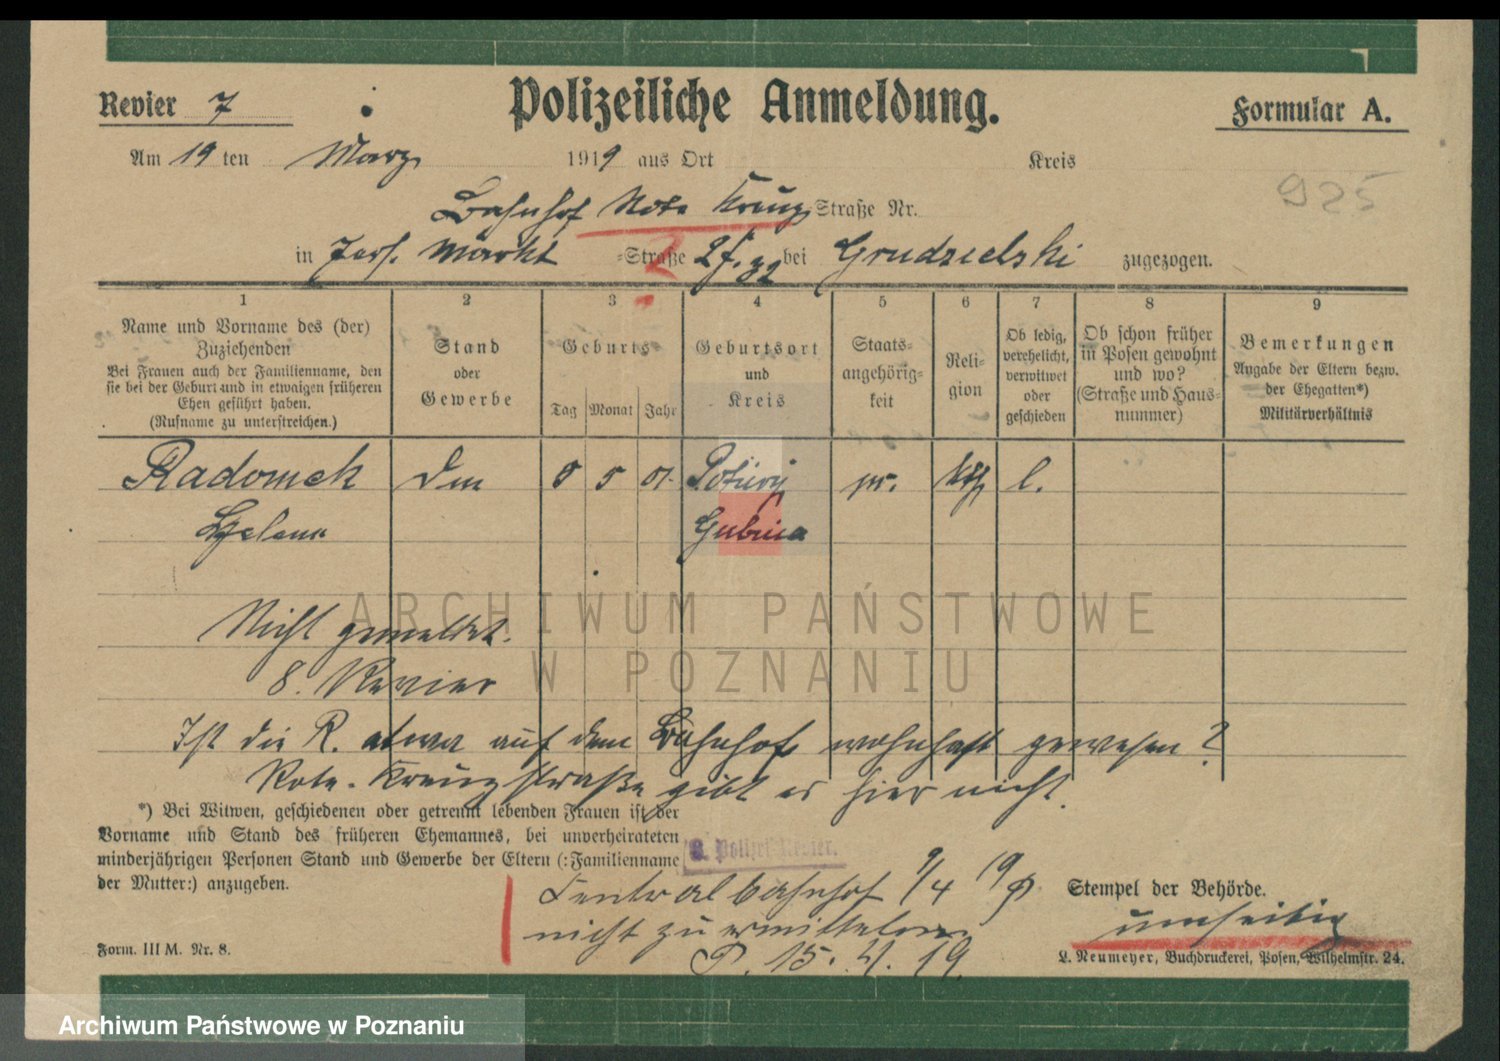 Revier 7
Polizeiliche Anmeldung.
Formular A.
Am 19 ten März 1919 aus Ort Kreis
925
Bahnhof Rote Kreuz Straße Nr.
in Jers. Markt =Straße bei Grudzielski zugezogen.
1 2 3 4 5 6 7 8 9
Name und Vorname des (der)
Zuziehenden
Bei Frauen auch der Familienname, den
sie bei der Geburt und in etwaigen früheren
Ehen geführt haben.
(Rufname zu unterstreichen.)
Stand
oder
Gewerbe
Geburts-
Tag Monat Jahr
Geburtsort
und
Kreis
Staats-
angehörig-
keit
Reli-
gion
Ob ledig,
verehelicht,
verwitwet
oder
geschieden
Ob schon früher
in Posen gewohnt
und wo?
(Straße und Haus-
nummer)
Bemerkungen
Angabe der Eltern bezw.
der Ehegatten*)
Militärverhältnis
Radomek 8 5 01. pr. kth l.
Helena
Nicht gemeldet.
8. Revier
Ist die R. etwa auf dem Bahnhof wohnhaft gewesen?
Rote-Kreuzstraße gibt es hier nicht.
*) Bei Witwen, geschiedenen oder getrennt lebenden Frauen ist der
Vorname und Stand des früheren Ehemannes, bei unverheirateten
minderjährigen Personen Stand und Gewerbe der Eltern (:Familienname
der Mutter:) anzugeben.
8. Polizei Revier.
Centralbahnhof 9/4 19
nicht zu ermitteln
P. 15. 4. 19.
Stempel der Behörde.
umseitig
Form. III M. Nr. 8.
L. Neumeyer, Buchdruckerei, Posen, Wilhelmstr. 24.
ARCHIWUM PAŃSTWOWE
W POZNANIU
Archiwum Państwowe w Poznaniu